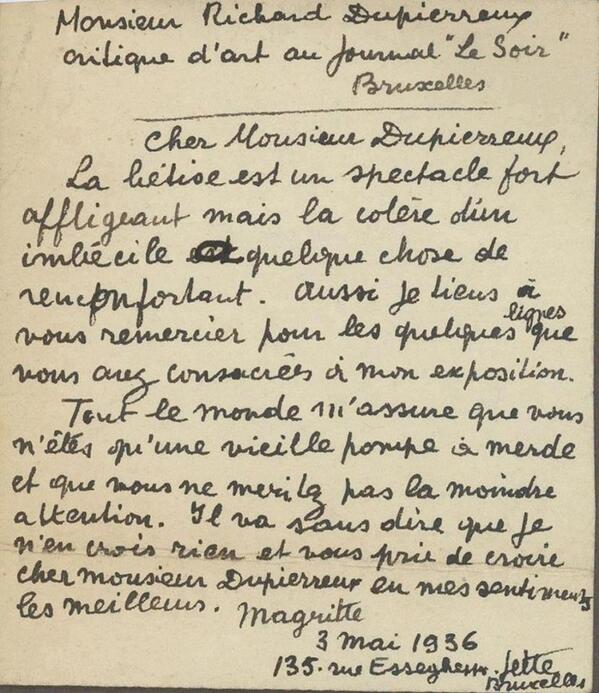 Monsieur Richard Dupierreux
critique d'art au Journal "Le Soir"
Bruxelles
Cher Monsieur Dupierreux,
La bêtise est un spectacle fort
affligeant mais la colère d'un
imbécile est quelque chose de
reconfortant. Aussi je tiens à
vous remercier pour les quelques lignes que
vous avez consacrées à mon exposition.
Tout le monde m'assure que vous
n'êtes qu'une vieille pompe à merde
et que vous ne meritez pas la moindre
attention. Il va sans dire que je
n'en crois rien et vous prie de croire
cher monsieur Dupierreux en mes sentiments
les meilleurs. Magritte
3 mai 1936
135. rue Esseghem. Jette
Bruxelles